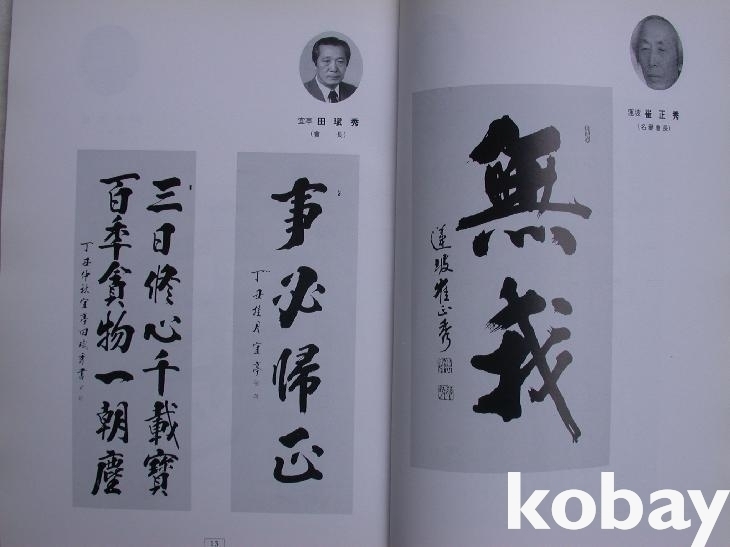 蓮坡 崔正秀
(名譽會長)
無我
蓮坡 崔正秀
宜亭 田瑞秀
(會 長)
事必歸正
丁丑桂月 宜亭
三日修心千載寶
百年貪物一朝塵
丁丑仲秋宜亭田瑞秀書
13
kobay